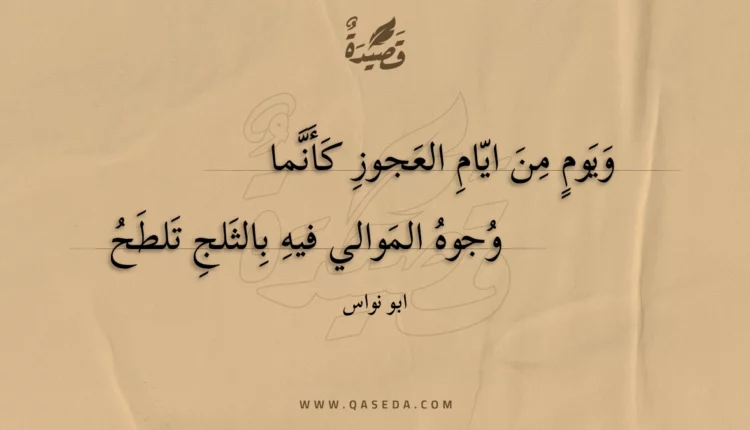 قَصِيدَةٌ
وَيَومٍ مِنَ ايّامِ العَجوزِ كَأَنَّما
وُجوهُ المَوالي فيهِ بِالثَلجِ تَلطَحُ
ابو نواس
WWW.QASEDA.COM